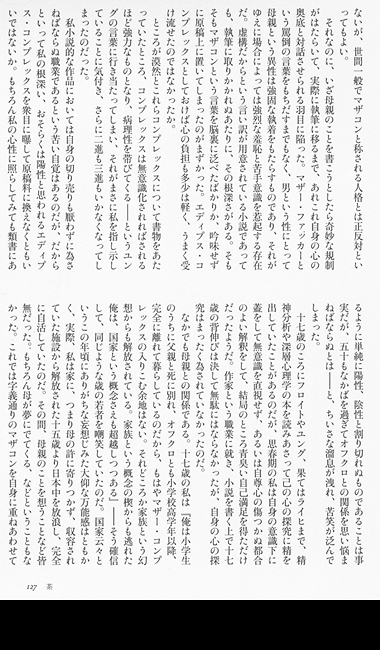 ないが、世間一般でマザコンと称される人格とは正反対とい
ってもよい。
　それなのに、いざ母親のことを書こうとしたら奇妙な規制
がはたらいて、実際に執筆に移るまで、あれこれ自身の心の
奥底と対話させられる羽目に陥った。マザー・ファッカーと
いう罵倒の言葉をもちだすまでもなく、男という性にとって
母親という異性は強固な執着をもたらすものであり、それが
ゆえに場合によっては強烈な羞恥と苦手意識を惹起する存在
だ。虚構だからという言い訳が用意されている小説であって
も、執筆に取りかかれぬあたりに、その根深さがある。そも
そもマザコンという言葉を脳裏に泛べたばかりか、吟味せず
に原稿上に置いてしまったのがまずかった。エディプス・コ
ンプレックスとしておけば心の負担も多少は軽く、うまく受
け流せたのではなかったか。
　ところが漠然とこれらコンプレックスについて書物をあた
っていたところ、コンプレックスは無意識化されればされる
ほど強力なものとなり、病理性を帯びてくる――というユン
グの言葉に行き当たってしまい、それがまさに私を指し示し
ていることに気付き、さらに二進も三進もいかなくなってし
まったのだった。
　私小説的な作品においては自身の切り売りも厭わずに為さ
ねばならぬ職業であるという苦い自覚はあるのだが、だから
といって私の根深い、おそらくは陽性と思われるエディプ
ス・コンプレックスを衆目に曝して原稿料に換えなくともい
いではないか。もちろん私の心性に照らしてみても類書にあ
るように単純に陽性、陰性と割り切れるものであることは事
実だが、五十もなかばを過ぎてオフクロとの関係を思い悩ま
ねばならぬとは――と、ちいさな溜息が洩れ、苦笑が泛んで
しまった。
　十七歳のころにフロイトやユング、果てはライヒまで、精
神分析や深層心理学の本を読みあさって己の心の探究に精を
出していたことがあるのだが、思春期の私は自身の意識下に
蓋をして無意識を直視せず、あるいは自尊心の傷つかぬ都合
のよい解釈をして、結局のところ青臭い自己満足を得ただけ
だったようだ。作家という職業に就き、小説を書く上で十七
歳の背伸びは決して無駄にはならなかったが、自身の心の探
究はまったく為されていなかったのだ。
　なかでも母親との関係である。十七歳の私は『俺は小学生
のうちに父親と死に別れ、オフクロとも小学校高学年以降、
完全に離れて暮らしているのだから、もはやマザー・コンプ
レックスの入りこむ余地はない。それどころか家族という幻
想からも解放されている。家族という概念の楔からも逃れた
俺は、国家という概念さえも超越しつつある』――そう確信
して、同じような歳の若者を嘲笑していたのだ。国家云々と
いうこの年頃にありがちな妄想じみた大仰な万能感はともか
く、実際、私は家に、つまり母の許に寄りつかず、収容され
ていた施設から解放された十五歳より日本中を放浪し、完全
に自活していたのだ。その間、母親のことを想うことなど皆
無だった。もちろん母が夢にでてくる、などということもな
かった。これでは字義通りのマザコンを自身に重ねあわせて
127　茶